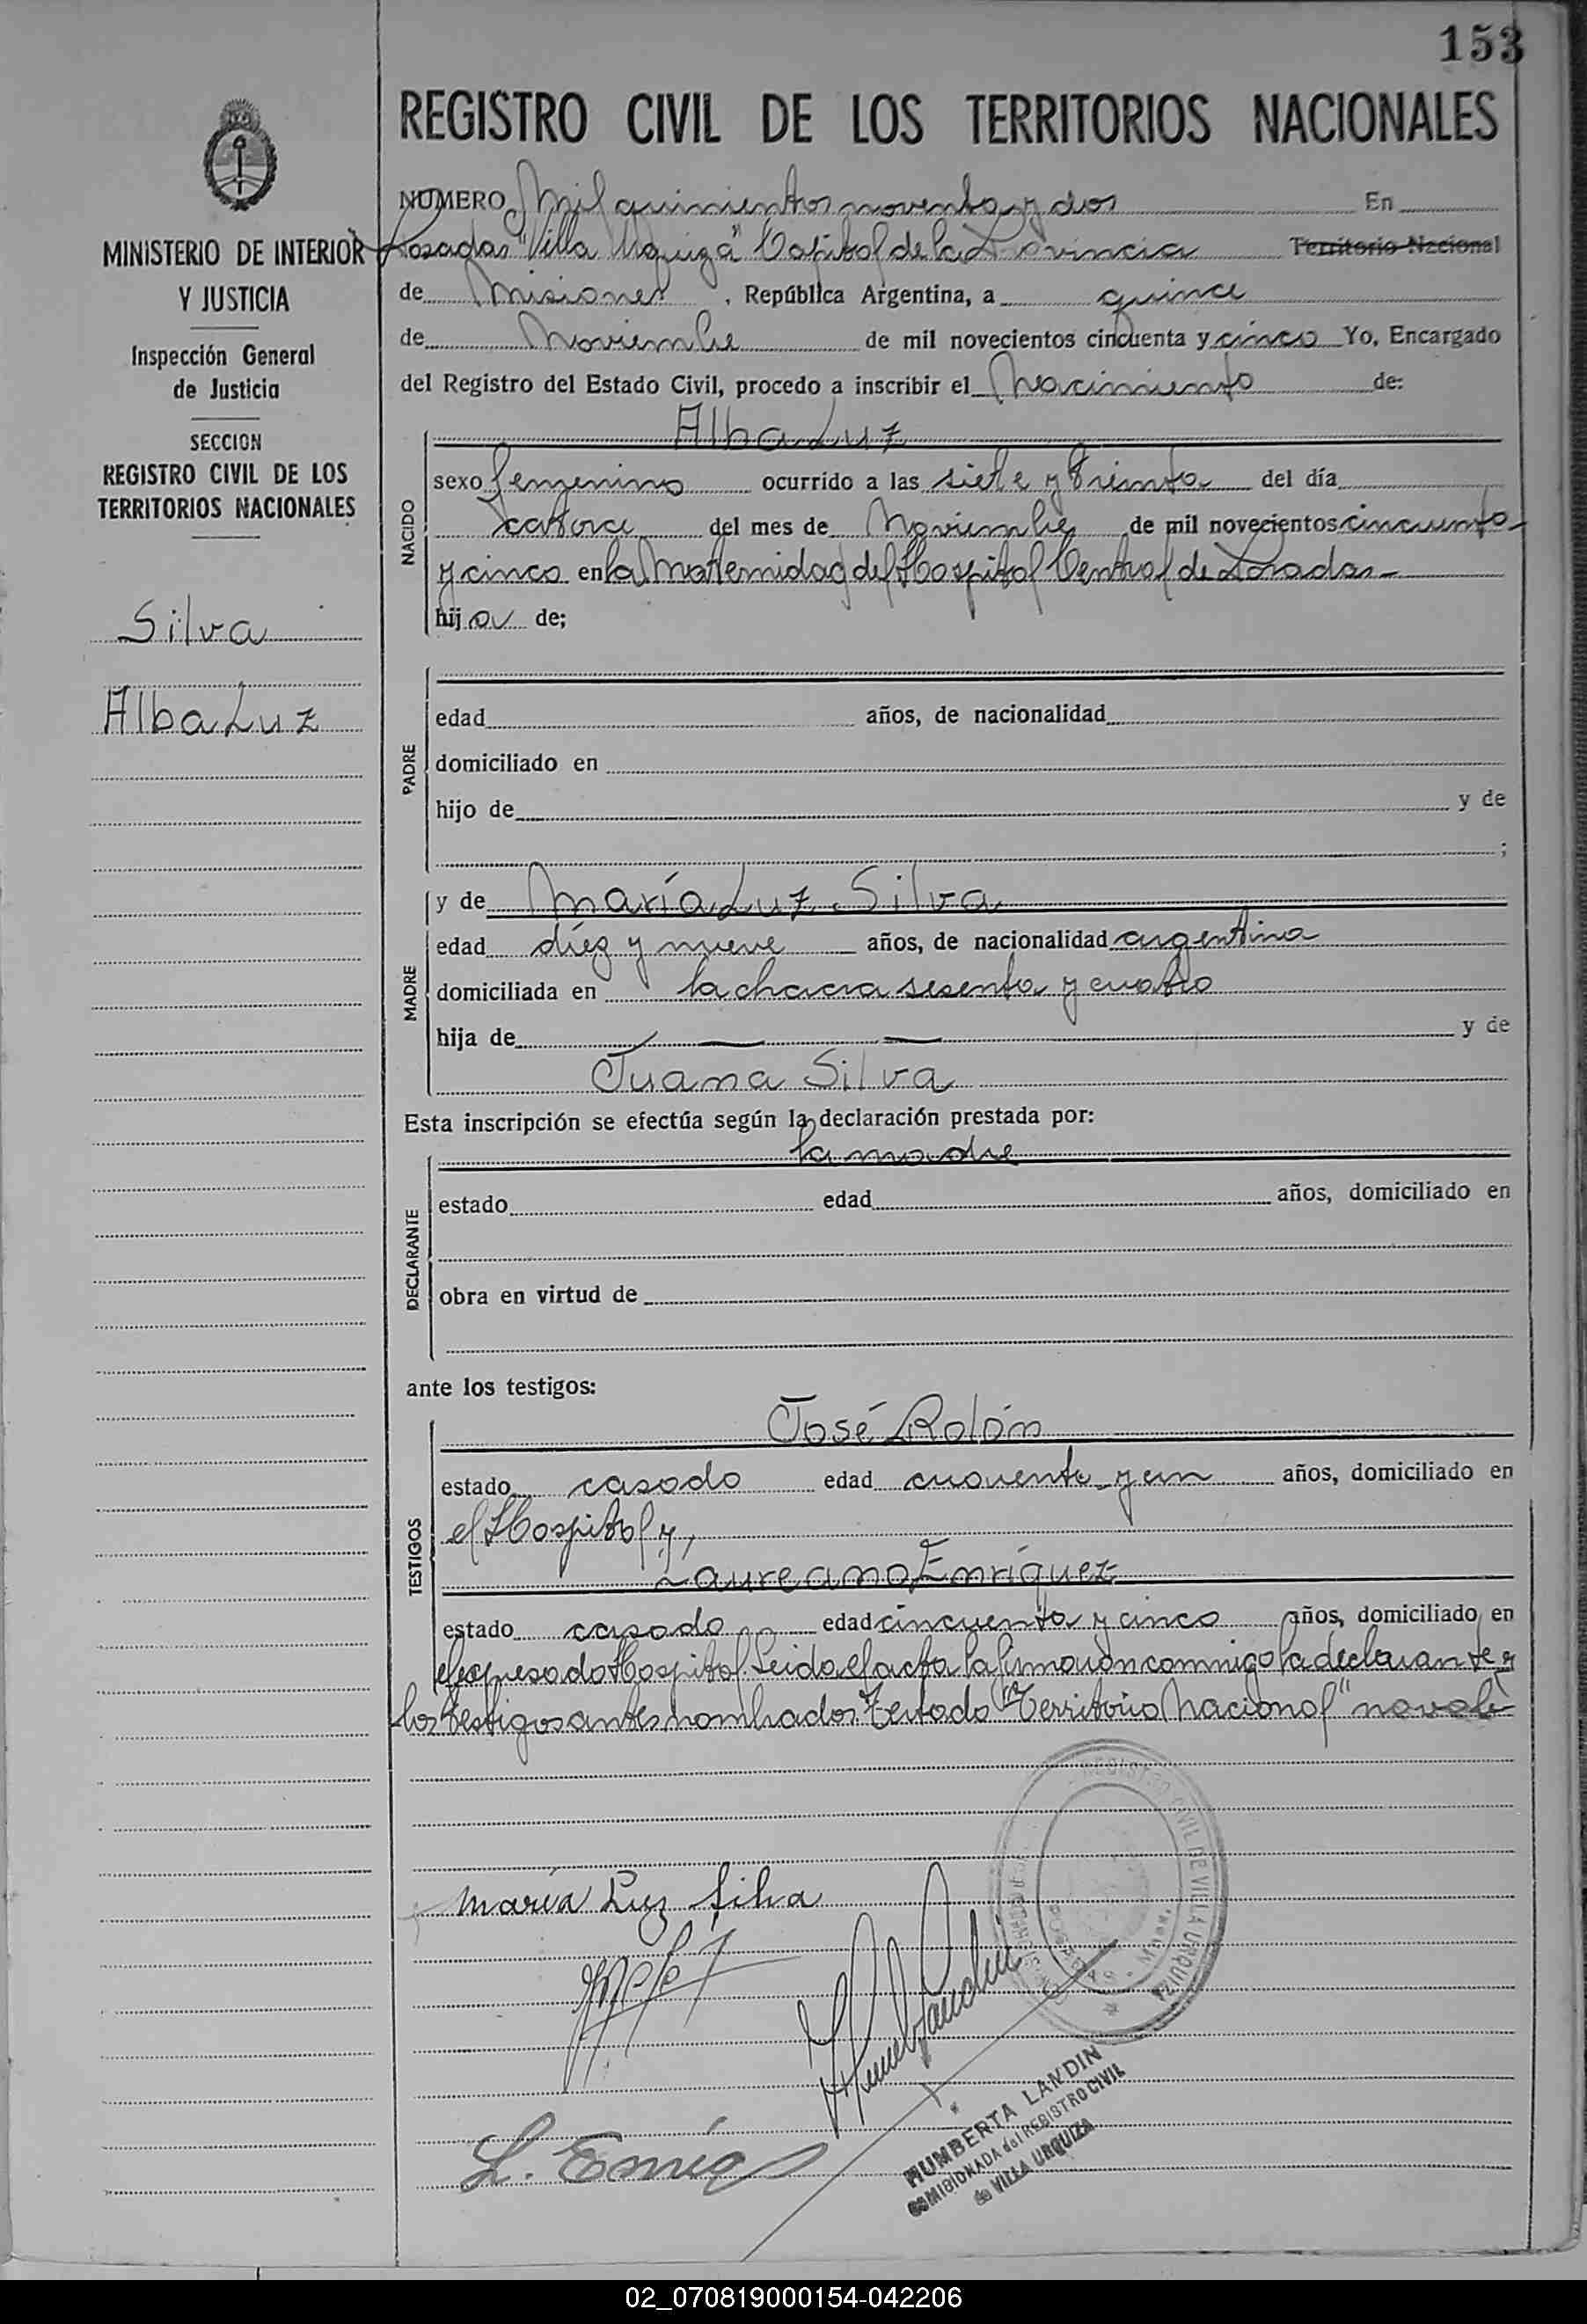 153
REGISTRO CIVIL DE LOS TERRITORIOS NACIONALES
MINISTERIO DE INTERIOR
Y JUSTICIA
Inspección General
de Justicia
SECCION
REGISTRO CIVIL DE LOS
TERRITORIOS NACIONALES
Silva
Alba Luz
NUMERO Mil quinientos noventa y dos En
Posadas "Villa Urquiza" Capital de la Provincia Territorio Nacional
de Misiones, República Argentina, a quince
de Noviembre de mil novecientos cincuenta y cinco Yo, Encargado
del Registro del Estado Civil, procedo a inscribir el Nacimiento de:
NACIDO
Alba Luz
sexo femenino ocurrido a las siete y treinta del día
catorce del mes de Noviembre de mil novecientos cincuenta
y cinco en la Maternidad del Hospital Central de Posadas-
hija de;
PADRE
edad años, de nacionalidad
domiciliado en
hijo de y de
;
MADRE
y de María Luz Silva
edad diez y nueve años, de nacionalidad argentina
domiciliada en la chacra sesenta y cuatro
hija de y de
Juana Silva
Esta inscripción se efectúa según la declaración prestada por:
DECLARANTE
la madre
estado edad años, domiciliado en
obra en virtud de
ante los testigos:
TESTIGOS
José Rolón
estado casado edad cuarenta y un años, domiciliado en
el Hospital y,
Laureano Enríquez
estado casado edad cincuenta y cinco años, domiciliado en
el expresado Hospital. Leida el acta la firmaron conmigo la declarante y
los testigos antes nombrados. Testado "Territorio Nacional" no vale
María Luz Silva
REGISTRO CIVIL DE VILLA URQUIZA
L. Enriq
HUMBERTA LANDIN
COMISIONADA del REGISTRO CIVIL
de VILLA URQUIZA
02_070819000154-042206